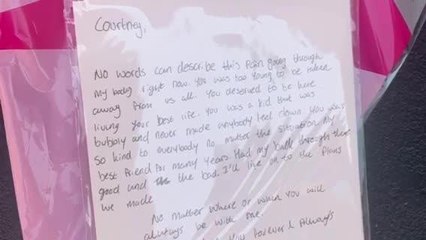 Courtney,
No words can describe this Pain going through
my body right now. You was too young to be taken
away from us all. You deserved to be here
living your best life. You was a kid that was
bubbly and never made anybody feel down. You was
so kind to everybody no matter the situation. My
best friend for many years. Had my back through the
good and the bad. I'll live on to the Plans
we made.
No matter where or when you will
always be with me.
You forever & Always